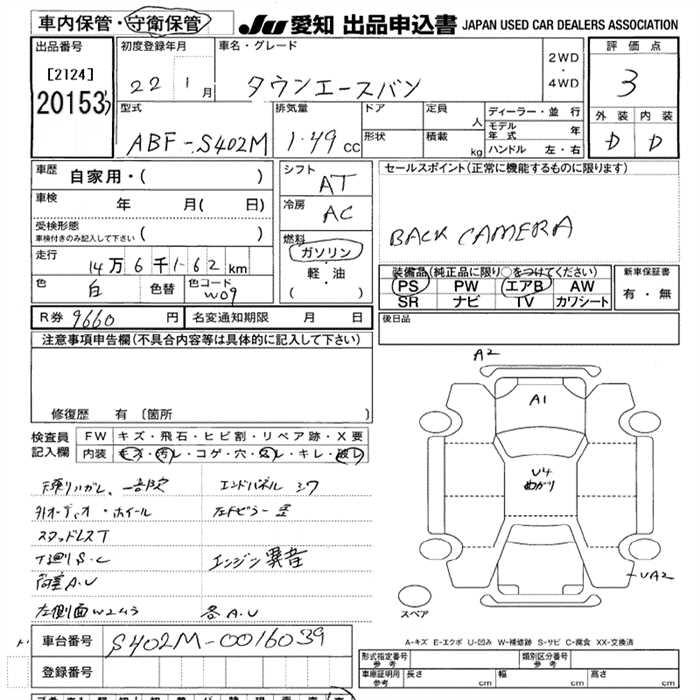 車内保管・守衛保管
JU 愛知 出品申込書 JAPAN USED CAR DEALERS ASSOCIATION
出品番号
[2124]
20153
初度登録年月
22 1月
車名・グレード
タウンエースバン
2WD
・
4WD
評価点
3
外装 内装
D D
型式
ABF-S402M
排気量
1.49 CC
ドア
形状
定員 人
積載 kg
ディーラー・並行
モデル年式 年
ハンドル 左・右
車歴
自家用・( )
車検
年 月( 日)
受検形態
車検付きのみ記入して下さい ( )
走行
14万6千162km
色
白
色替
色コード
W09
シフト
AT
冷房
AC
燃料
ガソリン
軽・油
( )
セールスポイント(正常に機能するものに限ります)
BACK CAMERA
装備品(純正品に限り○をつけてください)
PS PW エアB AW
SR ナビ TV カワシート
新車保証書
有・無
R券 9660 円 名変通知期限 月 日
後日品
注意事項申告欄(不具合内容等は具体的に記入して下さい)
修復歴 有 〔箇所 〕
検査員記入欄
FW キズ・飛石・ヒビ割・リペア跡・X要
内装 キズ・汚レ・コゲ・穴・ ・キレ・破レ
エンドパネル
外オーディオ・ホイール
スタッドレスT
下廻りS.C
エンジン異音
荷室A.U
左側面W2 W3
各A.U
A2
A1
U4
めがり
UA2
スペア
車台番号 S402M-0016039
登録番号
A-キズ E-エクボ U-凹み W-補修跡 S-サビ C-腐食 XX-交換済
形式指定番号
参考
類別区分番号
参考
車庫証明用
参考
長さ cm 幅 cm 高さ cm